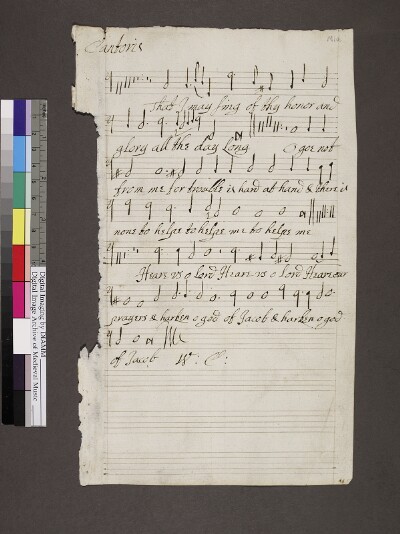 Cantoris
That I may sing of thy honor and
glory all the day long O goe not
from me for trouble is hard at hand & there is
none to helpe to helpe me to helpe me
Heare us o Lord Heare us o Lord Heare our
prayers & harken o god of Jacob & harken o god
of Jacob
Digital Imaging by DIAMM
Digital Image Archive of Medieval Music